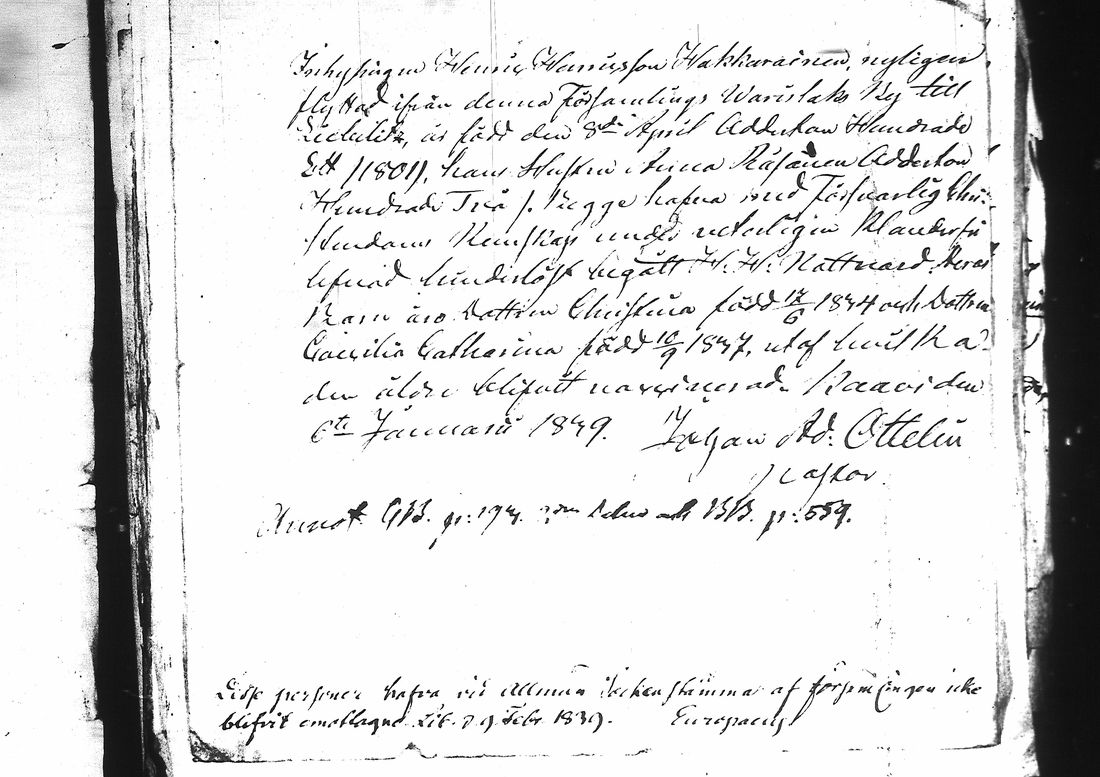 Inhysingen Henric Henricsson Hakkarainen, nyligen
flyttad ifrån denna Församlings Warislaks By till
Libelits, är född den 8de April Adderton Hundrade
Ett /1801/, hans Hustru Anna Räsänen Adderton
Hundrade Två /. Begge hafva med Försvarlig Chri-
stendoms Kunskap under veterligen Klanderfri
lefnad hinderslöst begått H. H. Nattvard. Deras
Barn äro Dottren Christina född 17/6 1834 och Dottren
Cæcilia Catharina född 10/9 1837, utaf hvilka
den äldre blifvit vaccinerad. Kaavi den
6te Januarii 1839. Johan Ad: Ottelin
Pastor.
Annot. GB. p: 194. 2dra Delen och BB. p: 559.
Desse personer hafva vid Allmän Sockenstämma af församlingen icke
blifvit emottagne. Lib. d. 9 Febr. 1839. Europaeus